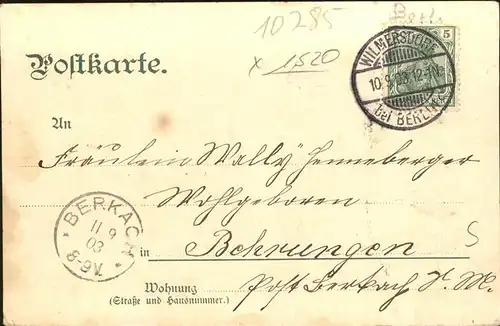 10285
Berl
x 1520
5
WILMERSDORF
10.9.03.12-1N.
bei BERLIN
Postkarte.
An
Fräulein Wally Henneberger
Wohlgeboren
BERKACH
11 9
03
8-9V.
in Behrungen
S
Wohnung
Post Berkach S. M.
(Straße und Hausnummer.)